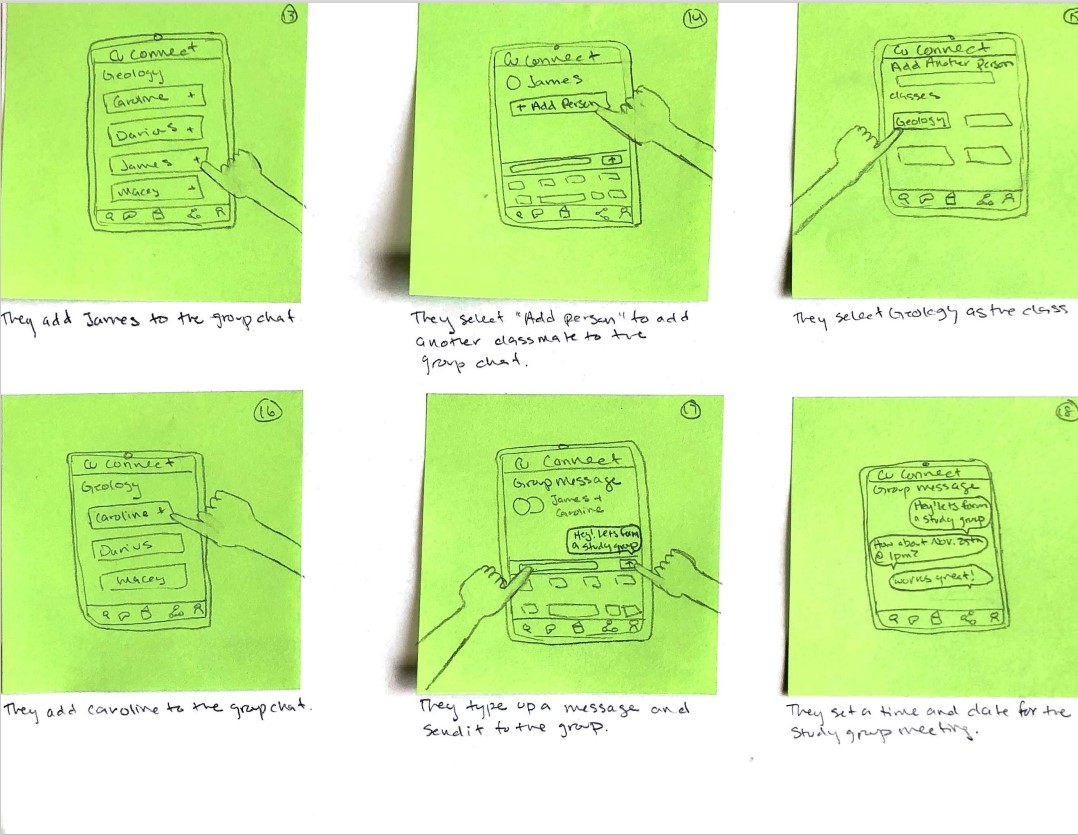 13
Cu Connect
Geology
Caroline +
Darius +
James +
Macey +
They add James to the group chat
14
Cu Connect
James
+ Add Person
They select "Add person" to add
another classmate to the
group chat.
15
Cu Connect
Add Another person
classes
Geology
They select Geology as the class
16
Cu Connect
Geology
Caroline +
Darius
Macey
They add Caroline to the group chat.
17
Cu Connect
Group message
James +
Caroline
Hey! Lets form
a study group
They type up a message and
send it to the group.
18
Cu Connect
Group message
Hey! Lets form
a study group
How about Nov. 25th
@ 1pm?
works great!
They set a time and date for the
study group meeting.